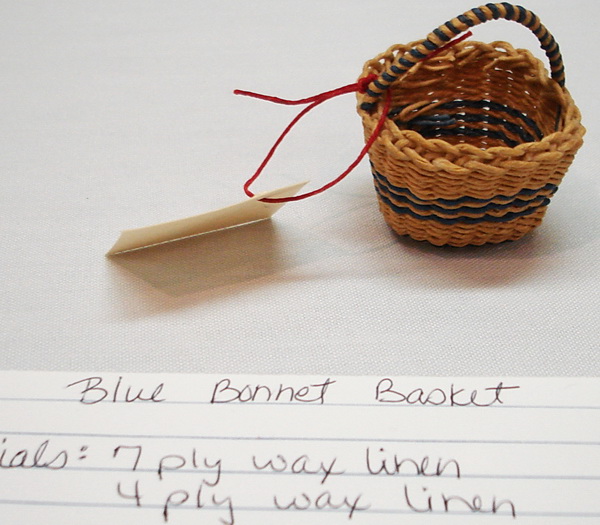 Blue Bonnet Basket
ials: 7 ply wax linen
4 ply wax linen